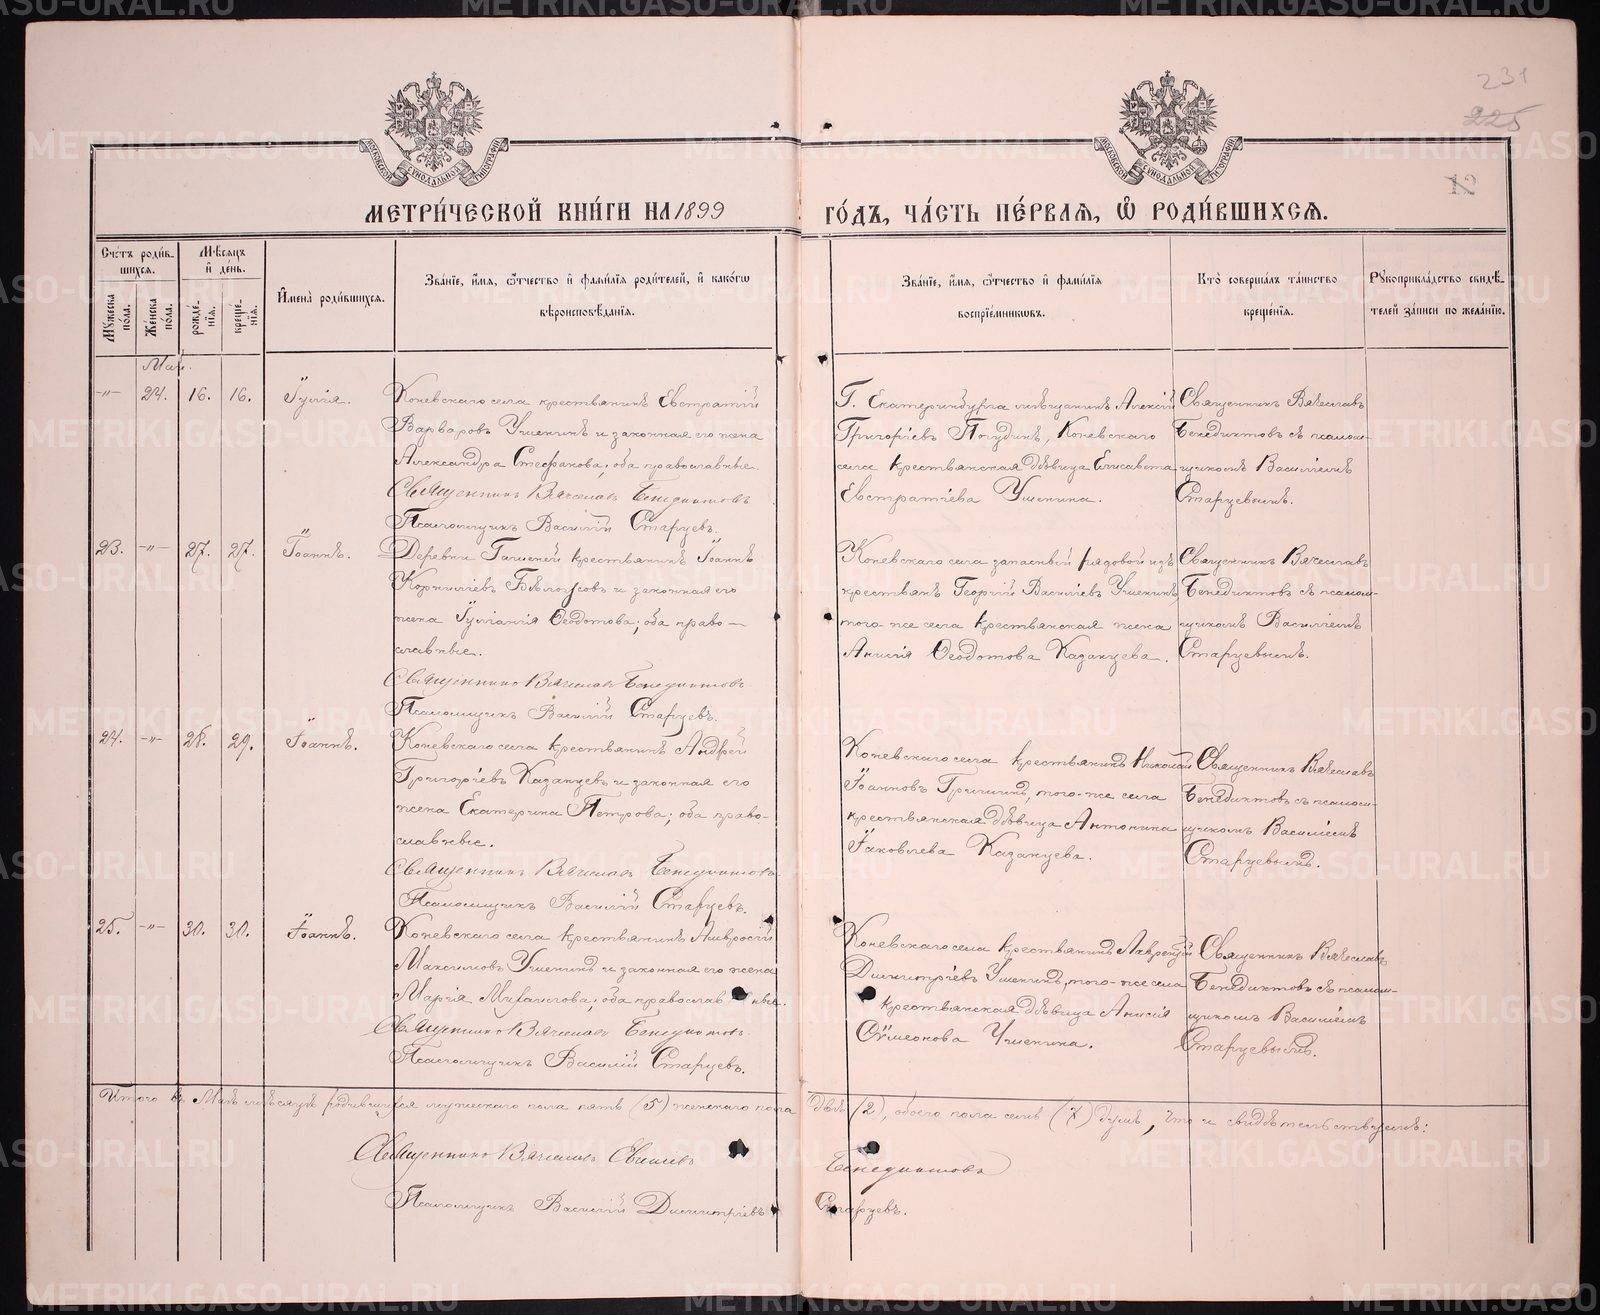 231
225
12
МЕТРИ́ЧЕСКОЙ КНИ́ГИ НА 1899 ГО́ДЪ, ЧА́СТЬ ПЕ́РВАЯ, Ѡ҆ РОДИ́ВШИХСЯ.
Сче́тъ роди́вшихся.
Мꙋ́жеска по́ла.
Же́нска по́ла.
Мѣ́сяцъ и҆ де́нь.
рожде́нїя.
креще́нїя.
И҆мена̀ роди́вшихся.
Зва́нїе, и҆́мя, ѻ҆́тчество и҆ фамѝлїя роди́телей, и҆ како́гѡ
вѣроисповѣ́данїя.
Зва́нїе, и҆́мя, ѻ҆́тчество и҆ фамѝлїя
воспрїе́мникѡвъ.
Кто̀ соверша́лъ та́инство
креще́нїя.
Рꙋкоприкла́дство свидѣ́-
телей за́писи по жела́нїю.
Май.
-"- 24. 16. 16. Іулія.
Коневскаго села крестьянинъ Евстратій
Варваровъ Ушенинъ и законная его жена
Александра Стефанова; оба православные.
Священникъ Вячеславъ Бенедиктовъ
Псаломщикъ Василій Старцевъ.
Г. Екатеринбурга мѣщанинъ Алексій
Григоріевъ Погудинъ, Коневскаго
села крестьянская дѣвица Елисавета
Евстратіева Ушенина.
Священникъ Вячеславъ
Бенедиктовъ съ псалом-
щикомъ Василіемъ
Старцевымъ.
23. -"- 27. 27. Іоаннъ.
Деревни крестьянинъ Іоаннъ
Корниліевъ Бѣлоусовъ и законная его
жена Іуліанія Ѳеодотова; оба право-
славные.
Священникъ Вячеславъ Бенедиктовъ
Псаломщикъ Василій Старцевъ.
Коневскаго села запасный рядовой изъ
крестьянъ Георгій Василіевъ Ушенинъ,
того-же села крестьянская жена
Анисія Ѳеодотова Казанцева.
Священникъ Вячеславъ
Бенедиктовъ съ псалом-
щикомъ Василіемъ
Старцевымъ.
24. -"- 28. 29. Іоаннъ.
Коневскаго села крестьянинъ Андрей
Григоріевъ Казанцевъ и законная его
жена Екатерина Петрова; оба право-
славные.
Священникъ Вячеславъ Бенедиктовъ
Псаломщикъ Василій Старцевъ.
Коневскаго села крестьянинъ Николай
Іоанновъ того-же села
крестьянская дѣвица Антонина
Іаковлева Казанцева.
Священникъ Вячеславъ
Бенедиктовъ съ псалом-
щикомъ Василіемъ
Старцевымъ.
25. -"- 30. 30. Іоаннъ.
Коневскаго села крестьянинъ Амвросій
Максимовъ Ушенинъ и законная его жена
Марія Михаилова; оба православные.
Священникъ Вячеславъ Бенедиктовъ
Псаломщикъ Василій Старцевъ.
Коневскаго села крестьянинъ Лаврентій
Димитріевъ Ушенинъ, того-же села
крестьянская дѣвица Анисія
Сѵмеонова Ушенина.
Священникъ Вячеславъ
Бенедиктовъ съ псалом-
щикомъ Василіемъ
Старцевымъ.
Итого въ Маѣ мѣсяцѣ родившихся мужескаго пола пять (5) женскаго пола двѣ (2), обоего пола семь (7) душъ, что и свидѣтельствуемъ:
Священникъ Вячеславъ Бенедиктовъ
Псаломщикъ Василій Димитріевъ Старцевъ.
METRIKI.GASO-URAL.RU